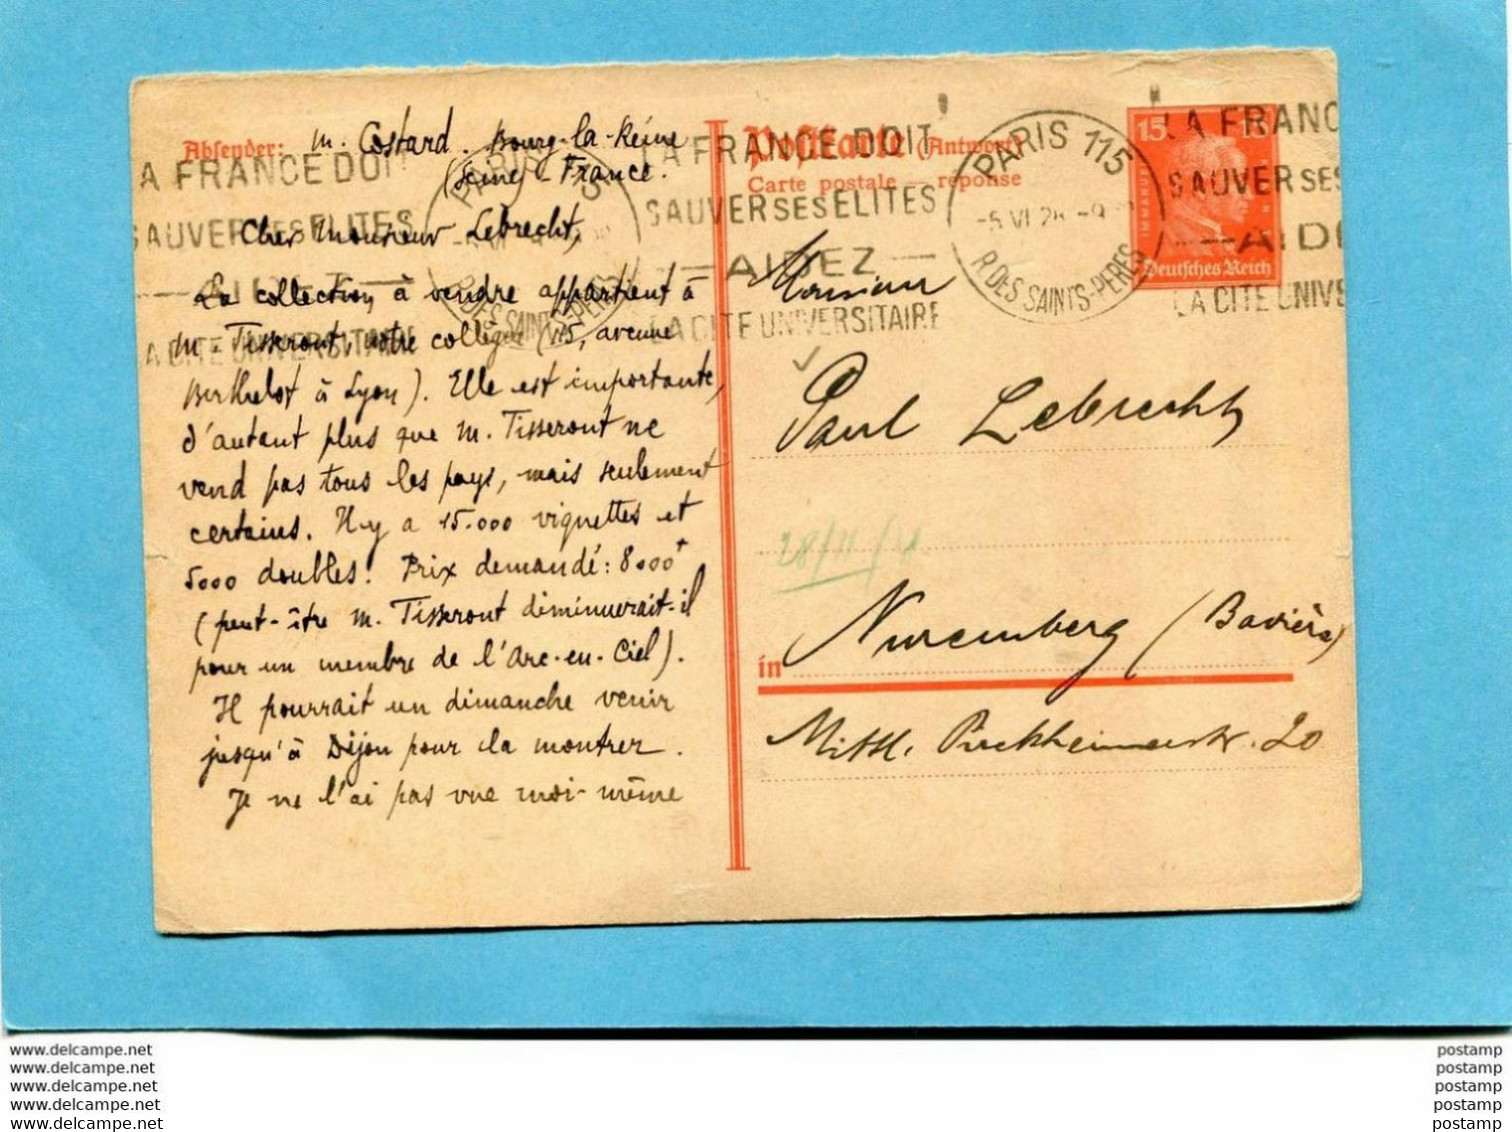 Absender: M. Costard. Bourg-la-Reine
(Seine) - France.
Cher Monsieur Lebrecht,
La collection à vendre appartient à
M. Tisseront, notre collègue (115, avenue
Berthelot à Lyon). Elle est importante,
d'autant plus que M. Tisseront ne
vend pas tous les pays, mais seulement
certains. Il y a 15.000 vignettes et
5000 doubles. Prix demandé: 8000
(peut-être M. Tisseront diminuerait-il
pour un membre de l'Arc-en-Ciel).
Il pourrait un dimanche venir
jusqu'à Dijon pour la montrer.
Je ne l'ai pas vue moi-même
A FRANCE DOIT
SAUVER SES ELITES
A CITE UNIVERSITAIRE
Postkarte (Antwort)
Carte postale — réponse
LA FRANCE DOIT
SAUVER SES ELITES
—AIDEZ—
LA CITE UNIVERSITAIRE
PARIS 115
R. DES SAINTS-PERES
15 15
IMMANUEL
Deutsches Reich
LA FRANC
SAUVER SES
—AIDE
LA CITE UNIVE
Monsieur
Paul Lebrecht
in Nuremberg (Bavière)
Mittl. Pirckheimerstr. 20
www.delcampe.net
www.delcampe.net
www.delcampe.net
www.delcampe.net
www.delcampe.net
postamp
postamp
postamp
postamp
postamp